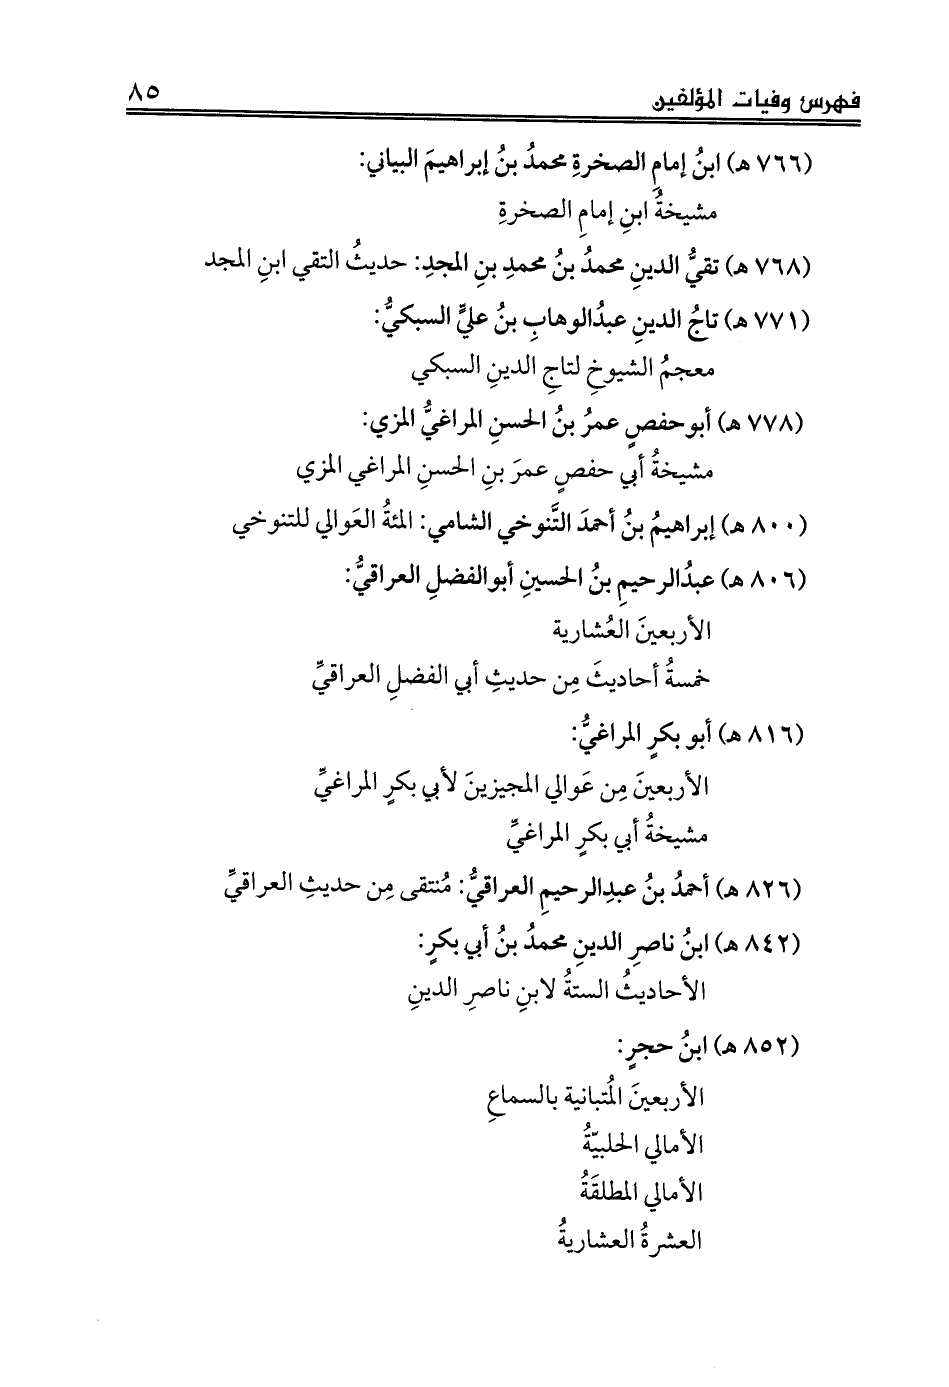 فهرس وفيات المؤلفين ٨٥
(٧٦٦ هـ) ابنُ إمامِ الصخرةِ محمدُ بنُ إبراهيمَ البياني:
مشيخةُ ابنِ إمامِ الصخرةِ
(٧٦٨ هـ) تقيُّ الدينِ محمدُ بنُ محمدِ بنِ المجدِ: حديثُ التقي ابنِ المجد
(٧٧١ هـ) تاجُ الدينِ عبدُالوهابِ بنُ عليٍّ السبكيُّ:
معجمُ الشيوخِ لتاجِ الدينِ السبكي
(٧٧٨ هـ) أبو حفصٍ عمرُ بنُ الحسنِ المراغيُّ المزي:
مشيخةُ أبي حفصٍ عمرَ بنِ الحسنِ المراغي المزي
(٨٠٠ هـ) إبراهيمُ بنُ أحمدَ التَّنوخي الشامي: المئةُ العَوالي للتنوخي
(٨٠٦ هـ) عبدُالرحيمِ بنُ الحسينِ أبوالفضلِ العراقيُّ:
الأربعينَ العُشارية
خمسةُ أحاديثَ مِن حديثِ أبي الفضلِ العراقيِّ
(٨١٦ هـ) أبو بكرٍ المراغيُّ:
الأربعينَ مِن عَوالي المجيزينَ لأبي بكرٍ المراغيِّ
مشيخةُ أبي بكرٍ المراغيِّ
(٨٢٦ هـ) أحمدُ بنُ عبدِالرحيمِ العراقيُّ: مُنتقى مِن حديثِ العراقيِّ
(٨٤٢ هـ) ابنُ ناصرِ الدينِ محمدُ بنُ أبي بكرٍ:
الأحاديثُ الستةُ لابنِ ناصرِ الدينِ
(٨٥٢ هـ) ابنُ حجرٍ:
الأربعينَ المُتبانية بالسماعِ
الأمالي الحلبيّةُ
الأمالي المطلقَةُ
العشرةُ العشاريةُ